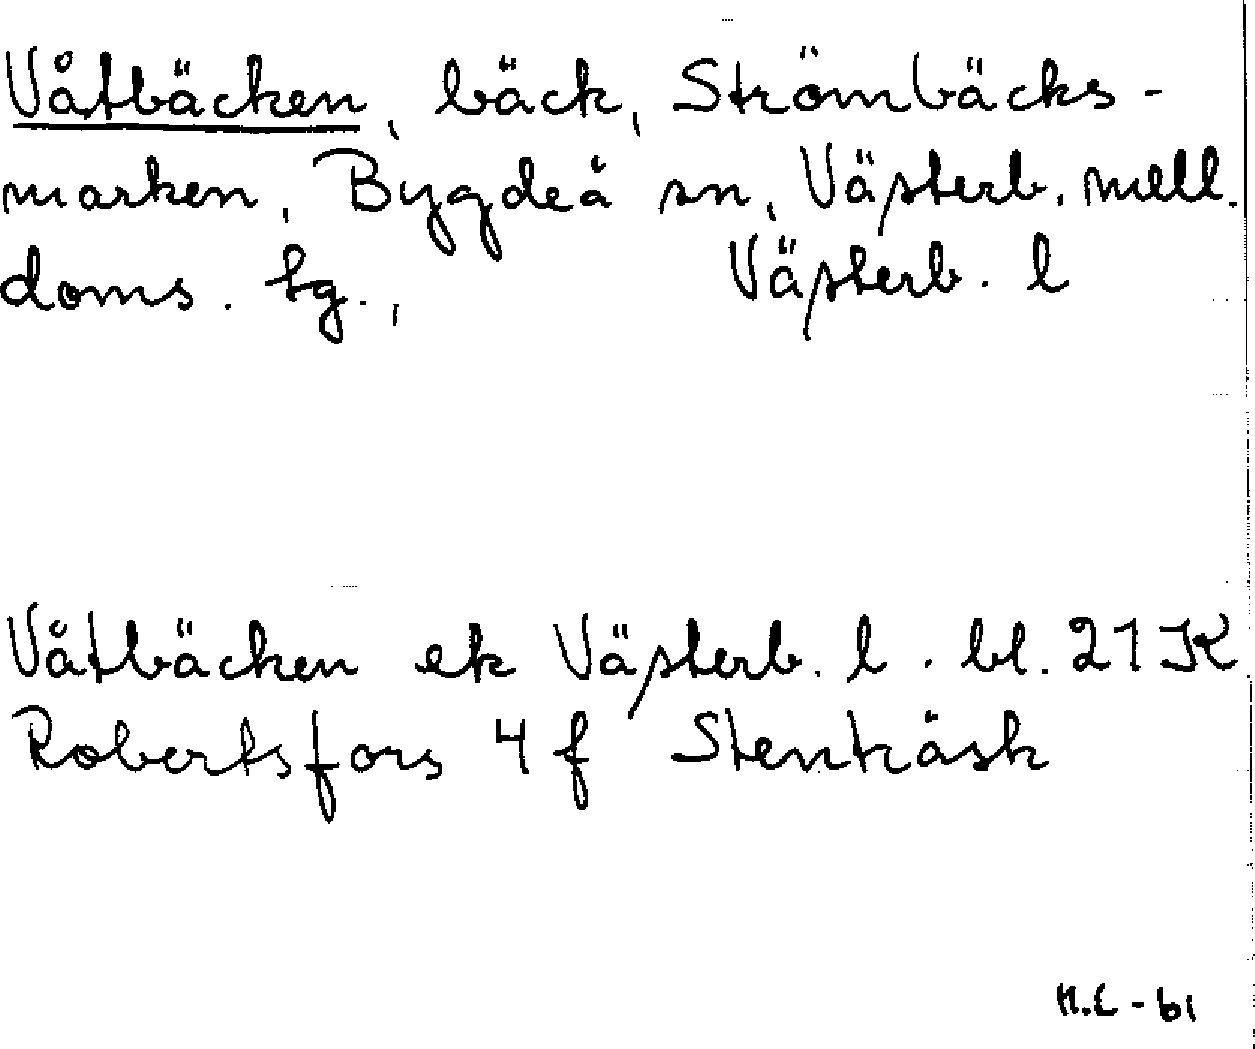 Våtbäcken, bäck, Strömbäcks-
marken, Bygdeå sn, Västerb. mell.
doms. tg., Västerb. l
Våtbäcken ek Västerb. l. bl. 21 K
Robertsfors 4 f Stenträsk
H.L - 61